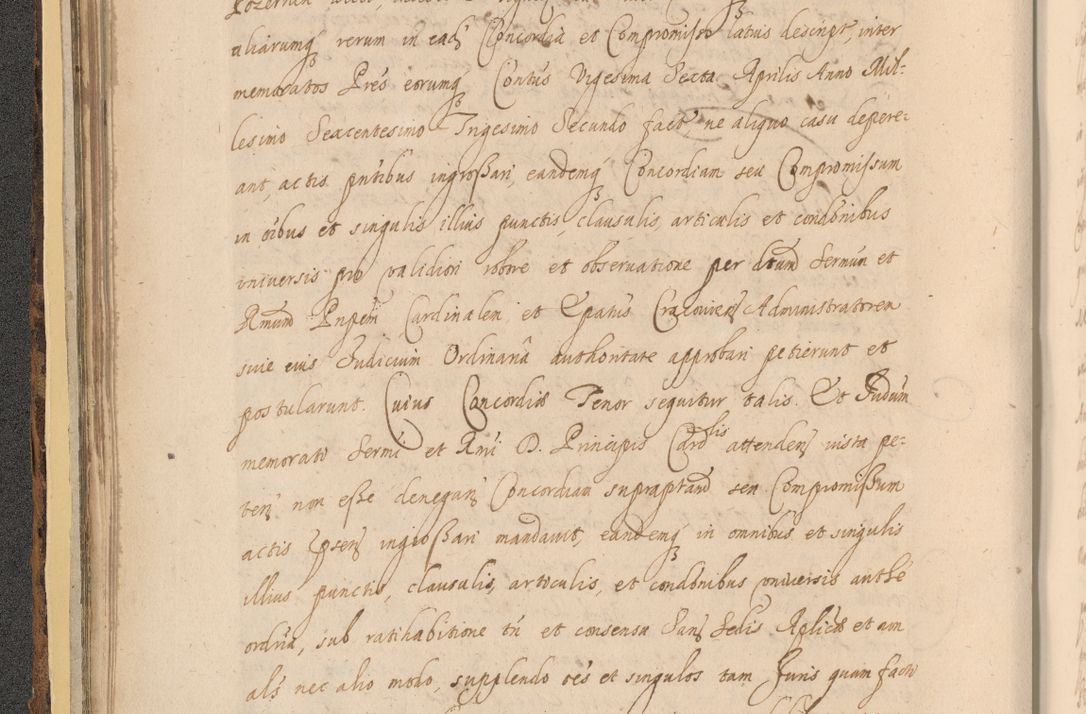 aliarumq rerum in ead Concordia et Compromisso latius descript, inter
memoratos Pres eorumq Contus Vigesima Sexta Aprilis Anno Mil-
lesimo Sexcentesimo Trigesimo Secundo fact, ne aliquo casu depere-
ant, actis pntibus ingrossari, eandemq Concordiam seu Compromissum
in oibus et singulis illius punctis, clausulis, articulis et condonibus
universis pro validiori robore et observatione per dtum Sermum et
Rmum Pnpem Cardinalem, et Epatus Cracovien Administratorem
sive eius Iudicium Ordinaria authoritate approbari petierunt et
postularunt. Cuius Concordiae Tenor sequitur talis. Et Iudium
memorati Sermi et Rmi D. Principis Cardlis attenden iusta pe-
ten non esse denegan Concordiam supraptam seu Compromissum
actis psen ingrossari mandavit, eandemq in omnibus et singulis
illius punctis, clausulis, articulis, et condonibus universis authe
ordria, sub ratihabitione tn et consensu San Sedis Aplicae et am
als nec alio modo, supplendo oes et singulos tam Juris quam facti